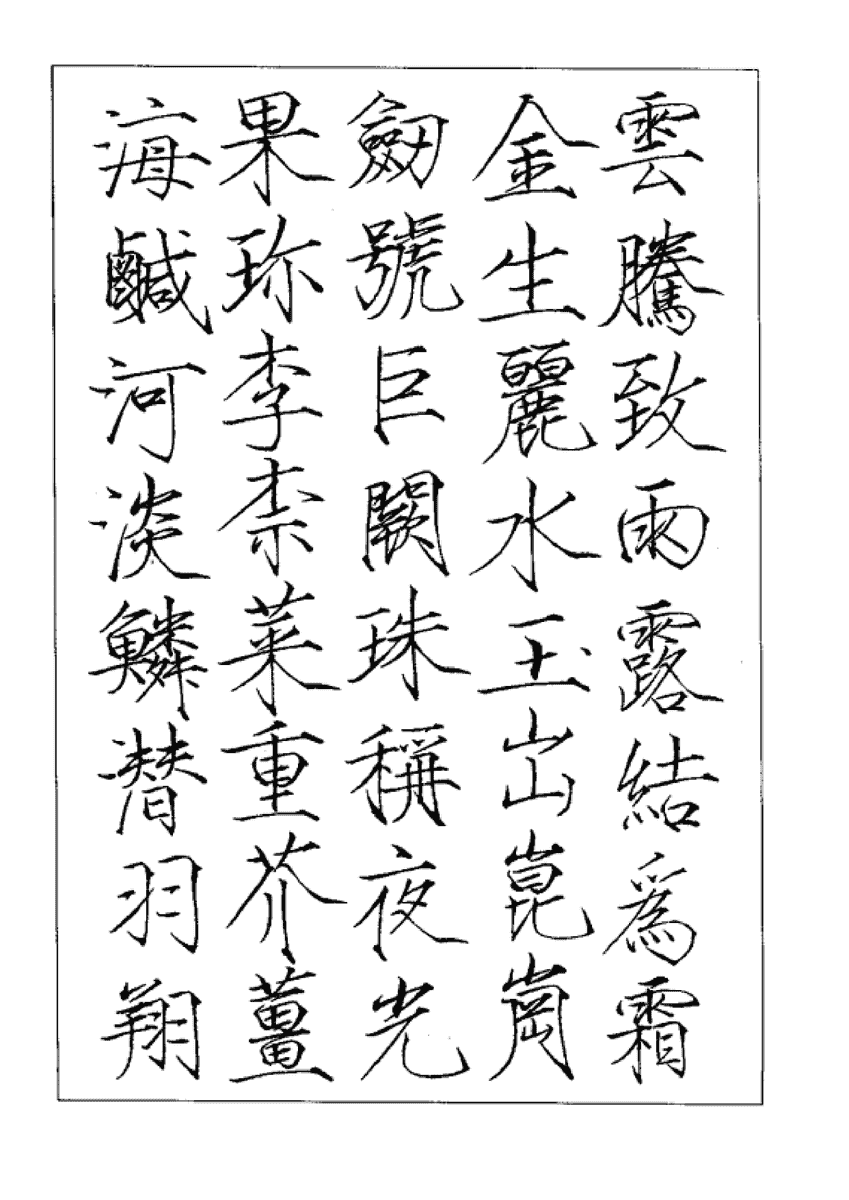 雲騰致雨露結爲霜
金生麗水玉岀崑崗
劒號巨闕珠稱夜光
果珎李柰菜重芥薑
海鹹河淡鱗潜羽翔